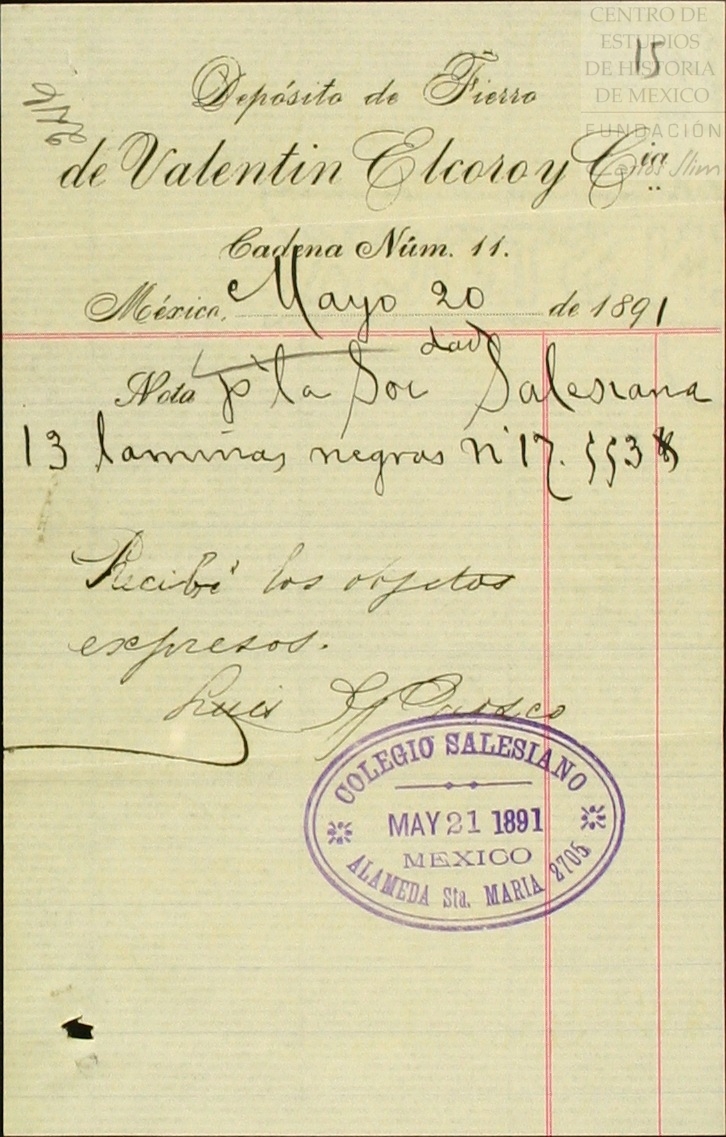 CENTRO DE
ESTUDIOS
DE HISTORIA
DE MEXICO
FUNDACIÓN
Carlos Slim
15
Depósito de Fierro
de Valentin Elcoro y Cia
Cadena Núm. 11.
México, Mayo 20 de 1891
Nota p' la Socdad Salesiana
13 laminas negras n° 17. 553 K
Recibí los objetos
expresos.
Luis G. Orosco
COLEGIO SALESIANO
MAY 21 1891
MEXICO
ALAMEDA Sta. MARIA 2705